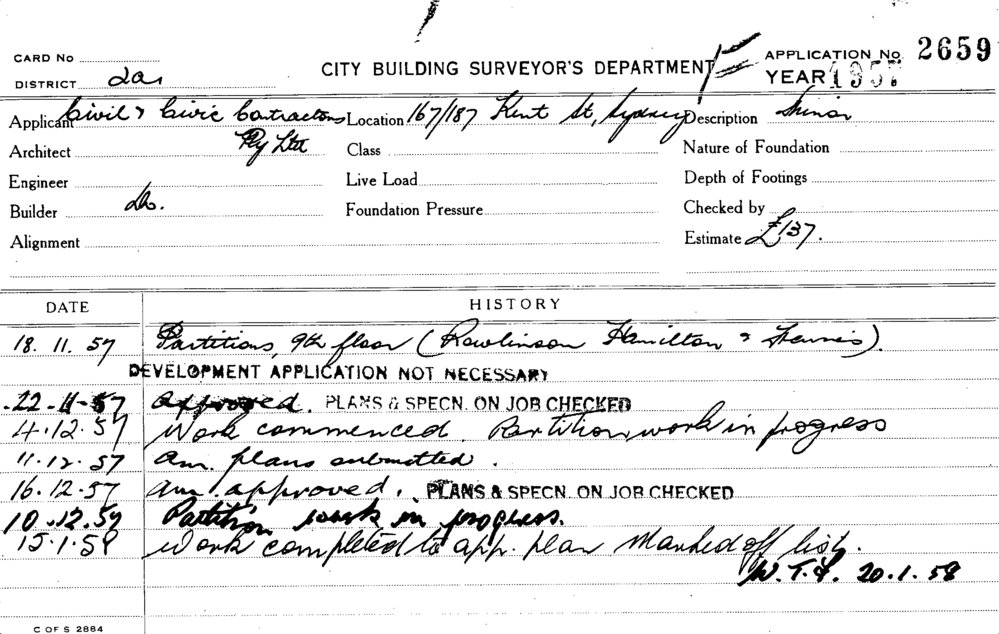 CARD No
DISTRICT 2a,
CITY BUILDING SURVEYOR'S DEPARTMENT
APPLICATION No. 2659
YEAR 1957
Applicant Civil & Civic Contractors Pty Ltd
Location 167/187 Kent St, Sydney
Description Minor
Architect
Class
Nature of Foundation
Engineer
Live Load
Depth of Footings
Builder Do.
Foundation Pressure
Checked by
Alignment
Estimate £137.
DATE HISTORY
18.11.57 Partitions, 9th floor (Rawlinson Hamilton &
DEVELOPMENT APPLICATION NOT NECESSARY
22-11-57 Approved. PLANS & SPECN. ON JOB CHECKED
4.12.57 Work commenced. Partition work in progress
11.12.57 Am. plans submitted.
16.12.57 Am. approved. PLANS & SPECN. ON JOB CHECKED
10.12.57 Partition work in progress.
15.1.58 Work completed to app. plan Marked off list.
20.1.58
C OF S 2884